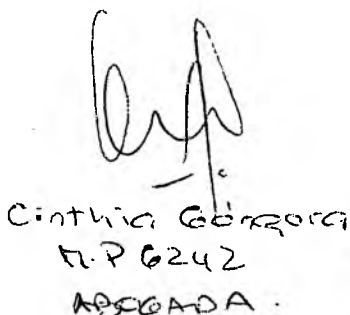 Cinthia Góngora
M.P 6242
ABOGADA.